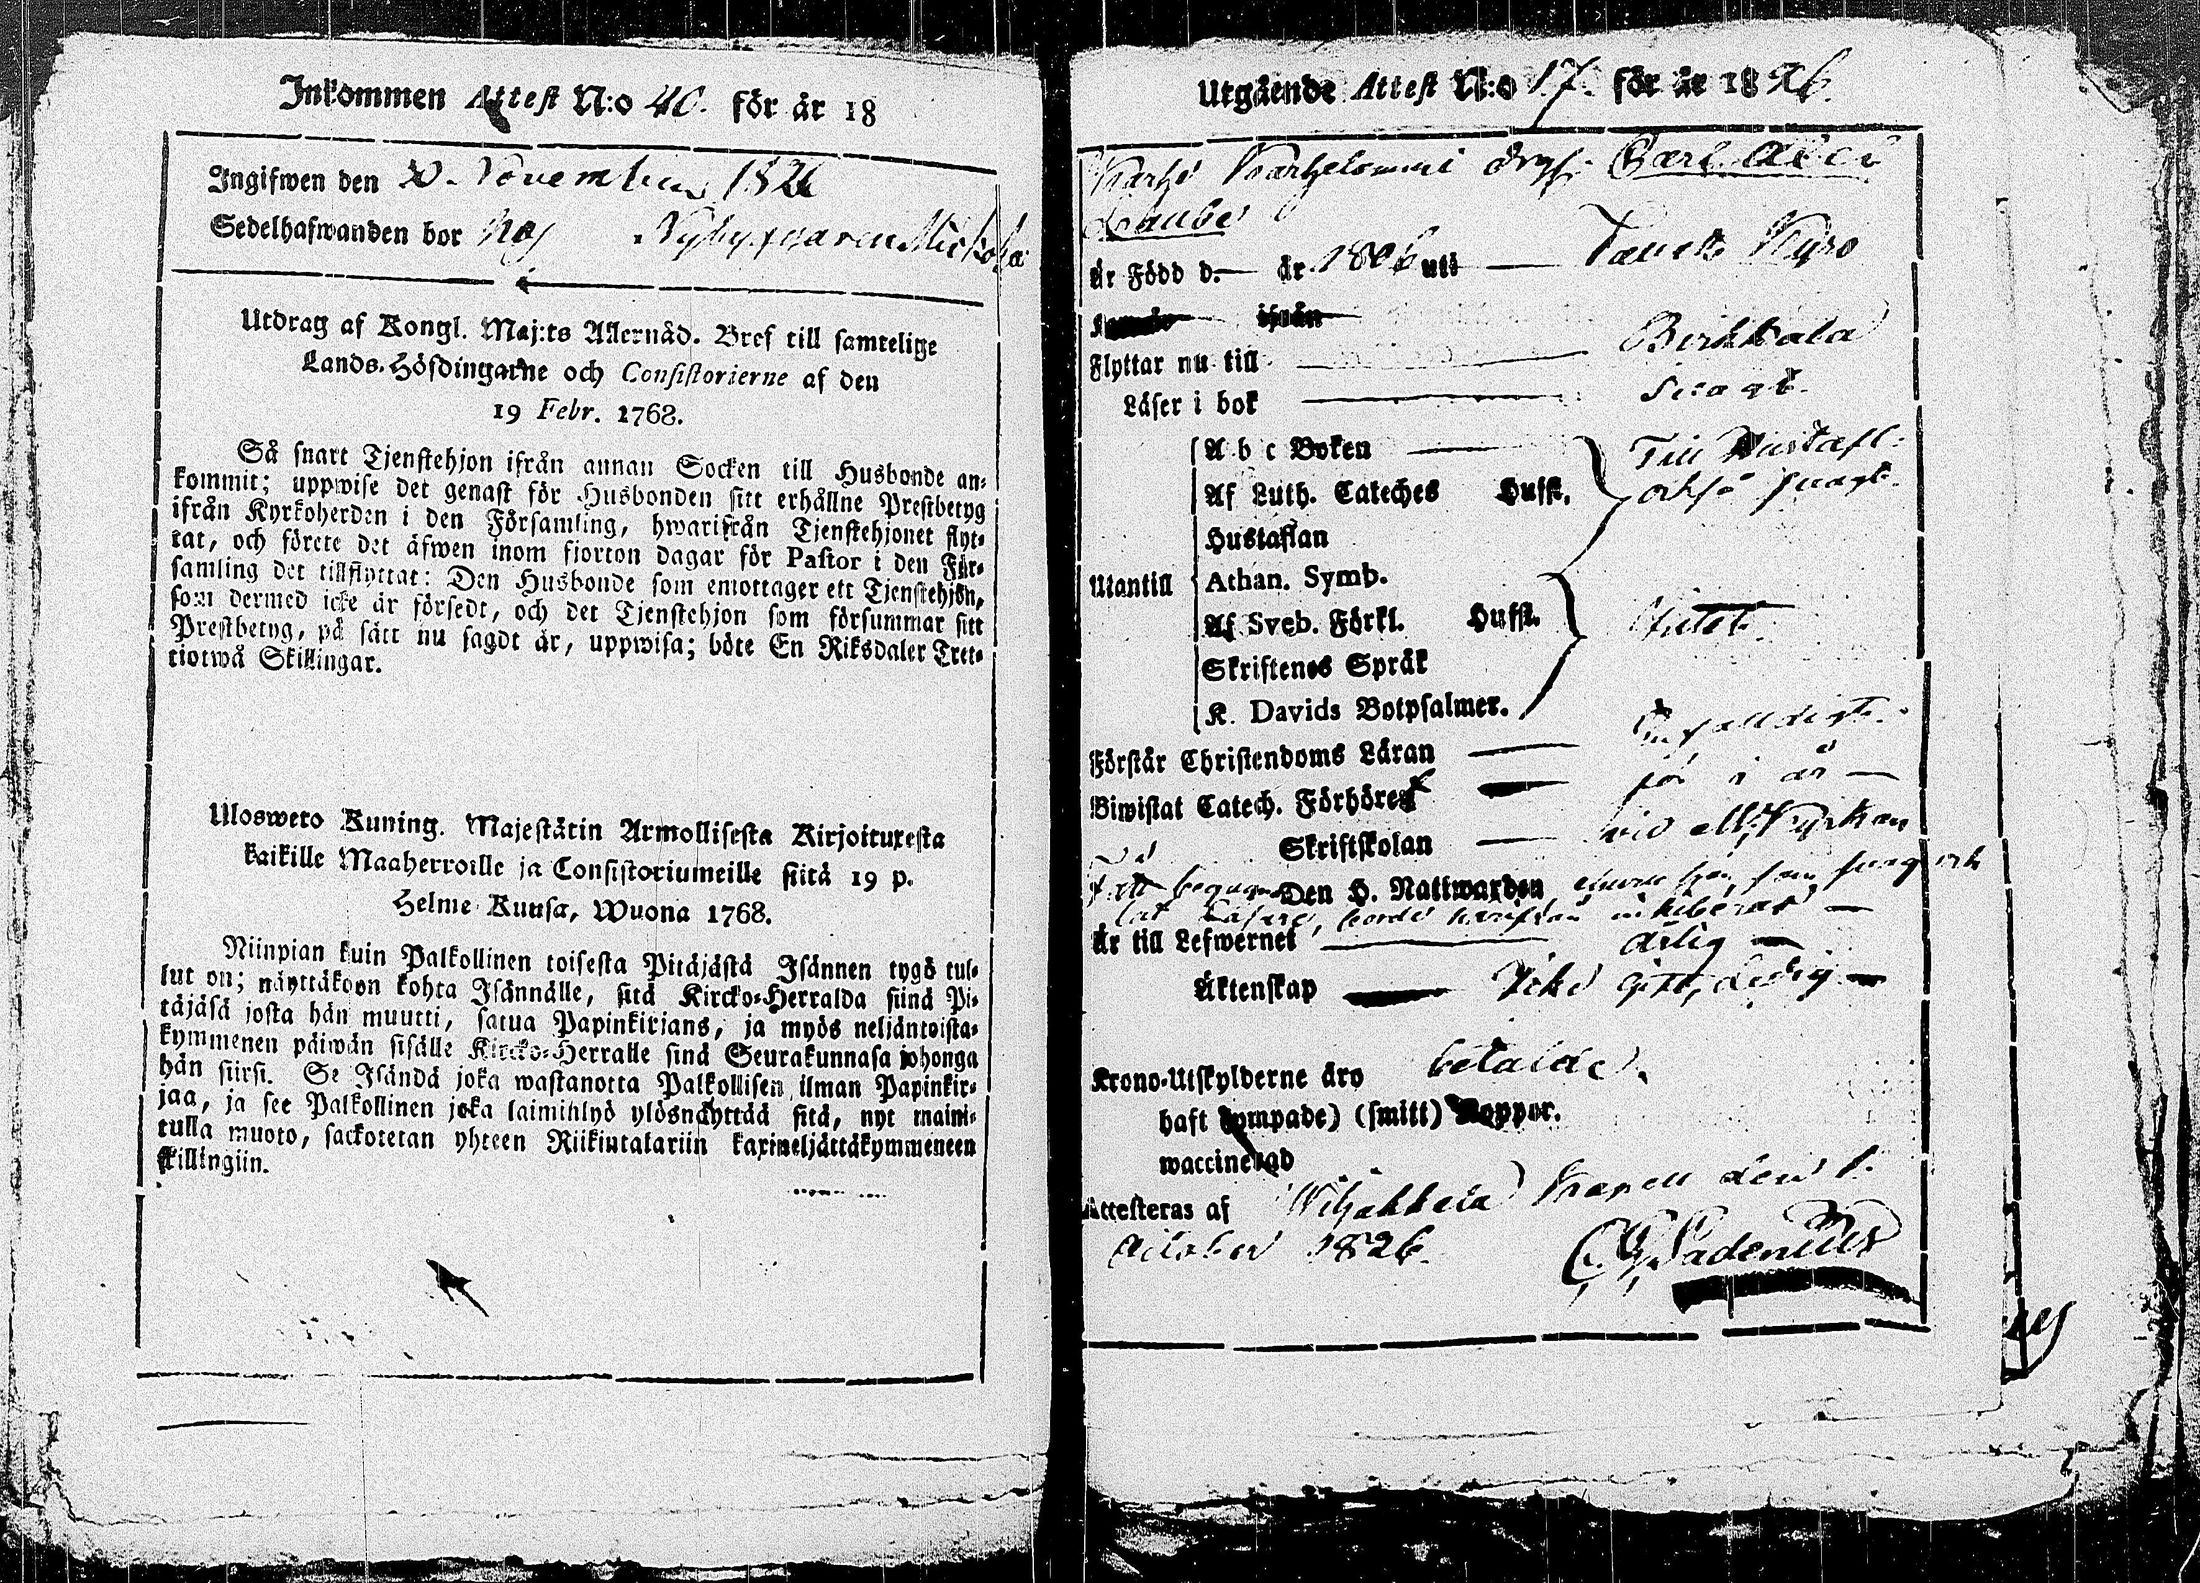 Inkommen Attest N:o 40. för år 18
Ingifwen den 20. November 1826
Sedelhafwanden bor hos Nybyggaren
Utdrag af Kongl. Maj:ts Allernåd. Bref till samtelige
Lands-Höfdingarne och Consistorierne af den
19 Febr. 1768.
Så snart Tjenstehjon ifrån annan Socken till Husbonde an-
kommit; uppwise det genast för Husbonden sitt erhållne Prestbetyg
ifrån Kyrkoherden i den Församling, hwarifrån Tjenstehjonet flyt-
tat, och förete det äfwen inom fjorton dagar för Pastor i den För-
samling det tillflyttat: Den Husbonde som emottager ett Tjenstehjon,
som dermed icke är försedt, och det Tjenstehjon som försummar sitt
Prestbetyg, på sätt nu sagdt är, uppwisa; böte En Riksdaler Tret-
tiotwå Skillingar.
Ulosweto Kuning. Majestätin Armollisesta Kirjoituxesta
kaikille Maaherroille ja Consistoriumeille siitä 19 p.
Helme Kuusa, Wuona 1768.
Niinpian kuin Palkollinen toisesta Pitäjästä Isännen tygö tul-
lut on; näyttäköön kohta Isännälle, sitä Kircko-Herralda siinä Pi-
täjäsä josta hän muutti, saatua Papinkirjans, ja myös neljäntoista-
kymmenen päiwän sisälle Kircko-Herralle siinä Seurakunnasa johonga
hän siirsi. Se Isändä joka wastanotta Palkollisen ilman Papinkir-
jaa, ja see Palkollinen joka laimihlyö ylösnäyttää sitä, nyt maini-
tulla muoto, sackotetan yhteen Riikintalariin kaxineljättäkymmeneen
skillingiin.
Utgående Attest N:o 17. för år 1826.
Karhe Karhelommi drg: Carl
är Född d. — år 1806 uti — Tavast Kyro
ifrån
Flyttar nu till — Birkkala
Läser i bok — svagt.
A b c Boken — Till Hustafl:
Af Luth. Cateches Hufst. också svagt.
Hustaflan
Utantill Athan. Symb.
Af Sveb. Förkl. Hufst. Intet
Skriftenes Språk
K. Davids Botpsalmer.
Förstår Christendoms Läran — Enfaldigt.
Biwistat Catech. Förhöret — för i år —
Skriftskolan — vid M:Kyrkan
Den H. Nattwarden
Är till Lefwernet — ärlig —
Äktenskap — Icke gift, ledig —
Krono-Utskylderne äro betalde.
haft (ympade) (smitt) Koppor.
waccinerad
Attesteras af Wiljakkala Kapell den 1.
October 1826.